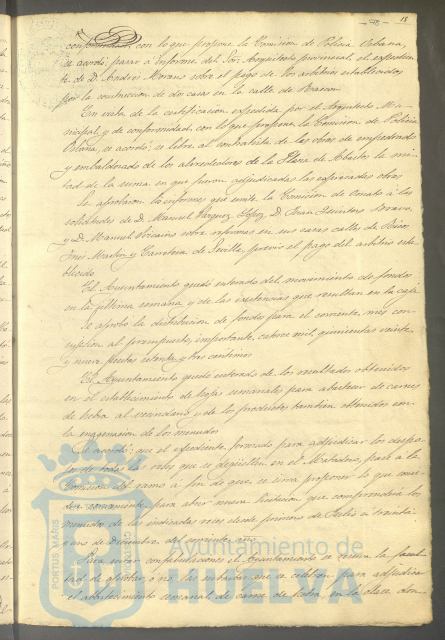 18
conformidad, con lo que propone la Comision de Policia Urbana,
se acordó: pasar á informe del Sor. Arquitecto provincial el expedien-
te de D. Andres Moreno sobre el pago de los arbitrios establecidos
por la construccion de dos casas en la calle de
En vista de la certificacion expedida por el Arquitecto Mu-
nicipal y de conformidad con lo que propone la Comision de Policia
Urbana, se acordó: se libre al contratista de las obras de empedrado
y embaldosado de los alrededores de la Plaza de Abastos la mi-
tad de la suma en que fueron adjudicadas las expresadas obras
Se aprobaron los informes que emite la Comision de Ornato á las
solicitudes de D. Manuel Vazquez Lopez, D. Juan Quintero
y D. Manuel sobre reformas en sus casas calles de
Martin y Carretera de Sevilla, previo el pago del arbitrio esta-
blecido
El Ayuntamiento quedó enterado del movimiento de fondos
en la última semana y de las existencias que resultan en la caja
Se aprobó la distribucion de fondos para el corriente mes con
sujecion al presupuesto, importante, catorce mil, quinientas veinte
y nueve pesetas setenta y tres centimos
El Ayuntamiento quedó enterado de los resultados obtenidos
en el establecimiento de bajas semanales para abastecer de carnes
de hebra al vecindario y de los productos tambien obtenidos con
la enagenacion de los menudos
Se acordó: que el expediente, formado para adjudicar los despo-
jos de todas las reses que se degüellen en el Matadero, pase á la
Comision del ramo á fin de que se sirva proponer lo que cre-
yere conveniente para abrir nueva licitacion que comprenderá los
menudos de las indicadas reses desde primero de Julio á treinta
y uno de Diciembre del corriente año
Para evitar el Ayuntamiento se reserva la facul-
tad de aprobar ó no las subastas que se celebren para adjudicar
el abastecimiento semanal de carne de hebra, en la clase, don-
Ayuntamiento de
HUELVA
PORTUS MARIS